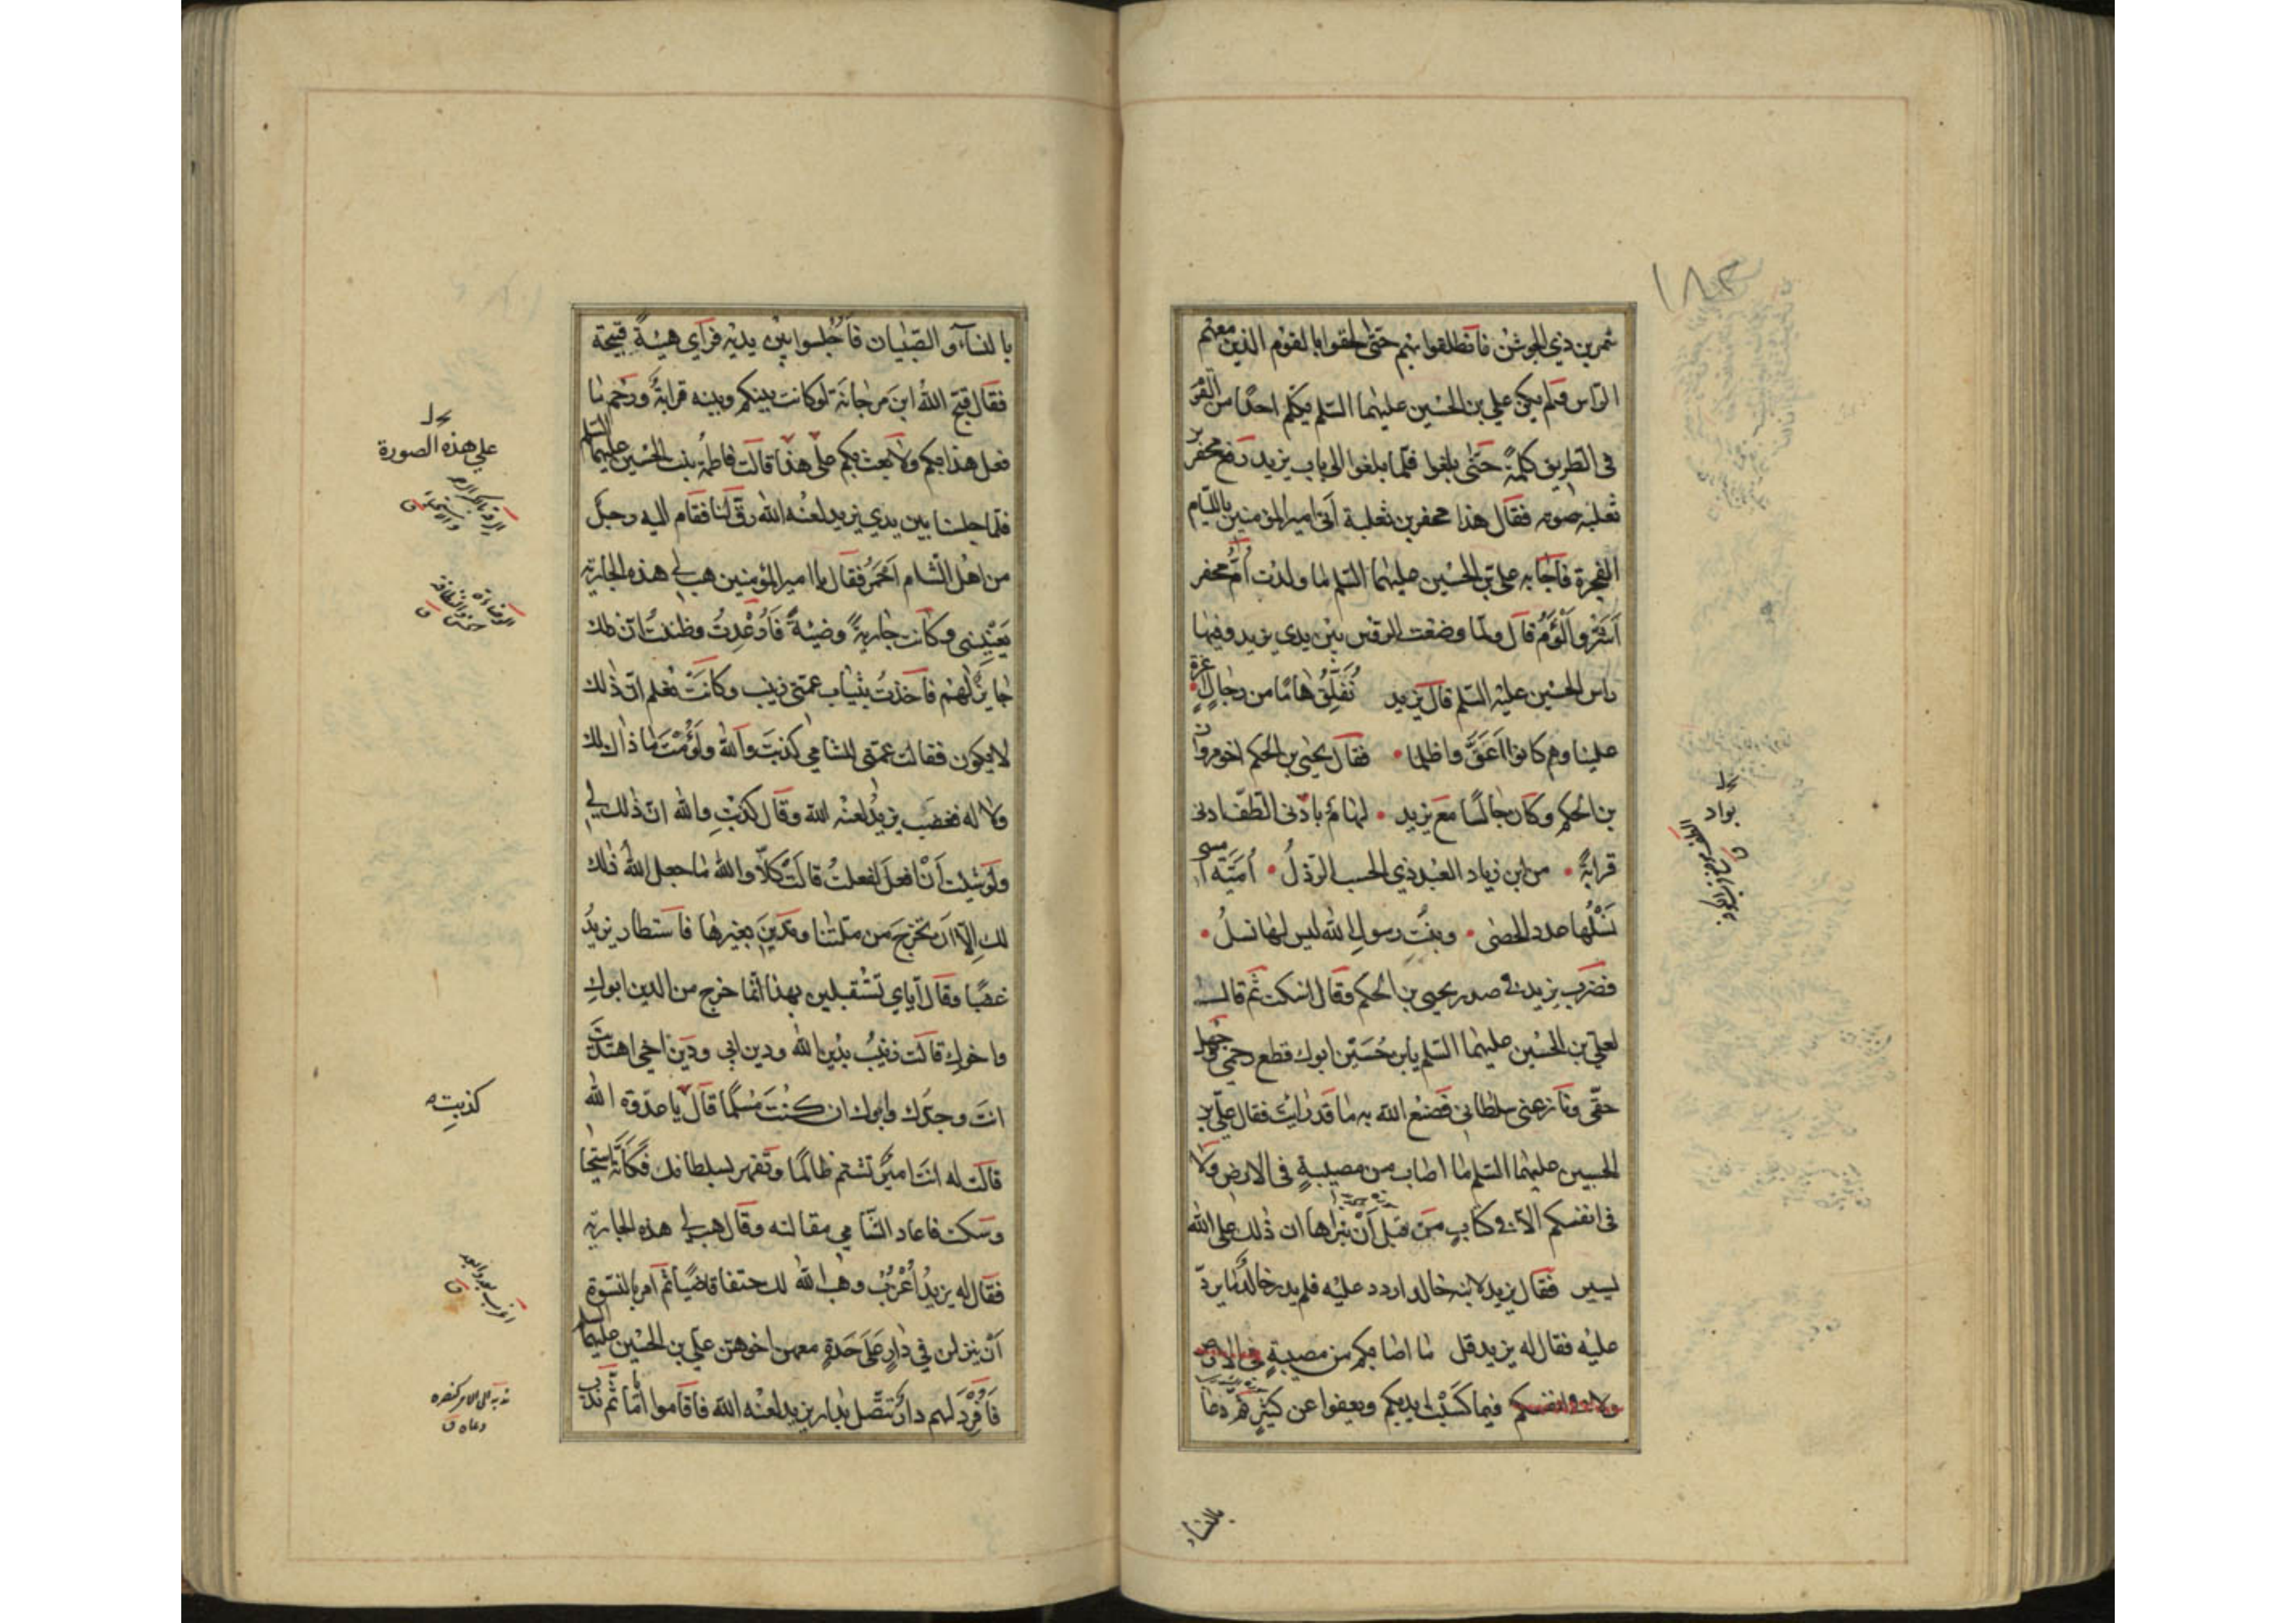 ١٨٣
شمر بن ذي الجوشن فانطلقوا بهم حتّى لحقوا بالقوم الذين معهم
الرّاس فلم يكن علي بن الحسين عليهما السّلم يكلّم احدًا من القوم
في الطريق كلمةً حتّى بلغوا فلّما بلغوا الى باب يزيد رفع محفر بن
ثعلبه صوته فقال هذا محفر بن ثعلبة اتى امير المؤمنين باللّئام
الفجرة فاجابه علي بن الحسين عليهما السّلم ما ولدت اُمّ محفر
اَشَرّ واَلْؤَمُ قال ولمّا وضعت الرؤس بين يدي يزيد وفيها
راس الحسين عليه السّلم قال يزيد نُفَلِّقُ هامًا من رجالٍ اعزة
علينا وهم كانوا اَعَقَّ واظلما • فقال يحيى بن الحكم اخو مروان
بن الحكم وكان جالسًا مع يزيد • لهام بادنى الطّفّ ادنى
قرابةً • من ابن زياد العبد ذي الحسب الرّذلُ • اُمَيّة امسى
نَسْلُها عدد الحصٰى • وبنْتِ رسولِ الله ليس لها نسلُ •
فضرب يزيد في صدر يحيى بن الحكم وقال اسكت ثمّ قال
لعلي بن الحسين عليهما السّلم يابن حُسَيْن ابوك قطع رحمي وجَهِل
حقّي ونازعني سلطاني فصنع الله به ما قد رايت فقال عليّ بن
الحسين عليهما السّلم ما اصاب من مصيبةٍ في الارض ولا
في انفسكم الاّ في كتابٍ من قبل اَنْ نبراها ان ذلك على الله
يسير فقال يزيد لابنه خالد اردد عليه فلم يدر خالدٌ ما يردّ
عليه فقال له يزيد قل ما اصابكم من مصيبةٍ في الارض
ولا في انفسكم فبما كَسَبَتْ ايديكم ويعفوا عن كثيرٍ ثم دعا
بواد
بالنساء
بالنسآء والصّبيان فَاُجْلسوا بين يديْه فرآى هيئةً قبيحة
فقال قبّح اللهُ ابنَ مرجانَة لو كانت بينكم وبينه قرابةٌ ورَحِم ما
فعل هذا بكم ولا بعث بكم على هذا قالت فاطمةُ بنت الحسين عليهما السلم
فلمّا جلسنا بين يدي يزيد لعنه الله رقّ لنا فقام اليه رجل
من اهل الشام اَحْمَرُ فقال يا امير المؤمنين هب لي هذه الجارية
يَعْنيني وكانت جاريةً وضيئةً فاُرْعِدتُ وظننتُ ان ذلك
جايزٌ لهم فاخذتُ بثياب عمتي زينب وكانَتْ تعلم انّ ذلك
لا يكون فقالت عمتي للشامي كذبتَ والله ولَؤُمْتَ ما ذاك لك
ولا له فغضب يزيدُ لعنه الله وقال كذبْتِ والله انّ ذلك لي
ولو شئت اَنْ افعلَ لفعلتُ قالَتْ كلاّ والله ما جعل اللهُ ذلك
لك اِلاّ اَنْ تخرج من ملّتنا وتَدينَ بغيرها فاستطار يزيدُ
غضبًا وقال اياي تستقبلين بهذا انما خرج من الدين ابوكِ
واخوكِ قالت زينبُ بدين الله ودين ابي ودين اخي اهتديتَ
انتَ وجدّك وابوك ان كنتَ مُسلمًا قال يا عدّوة الله
قالت له انتَ اميرٌ تشتم ظالمًا وتقهر بسلطانك فكانّه استحيا
وسكت فاعاد الشّامي مقالته وقال هب لي هذه الجارية
فقال له يزيدُ اُعْزُبْ وهب الله لك حتفًا قاضيًا ثمّ امر بالنسْوة
اَنْ ينزلن في دارٍ عَلَى حَدةٍ معهن اخوهنّ علي بن الحسين عليهما السلم
فَاُفْرِدَ لهم دارٌ تتصّل بدار يزيد لعنه الله فاقاموا ايّامًا ثم ندب
على هذه الصورة
كذبتِ